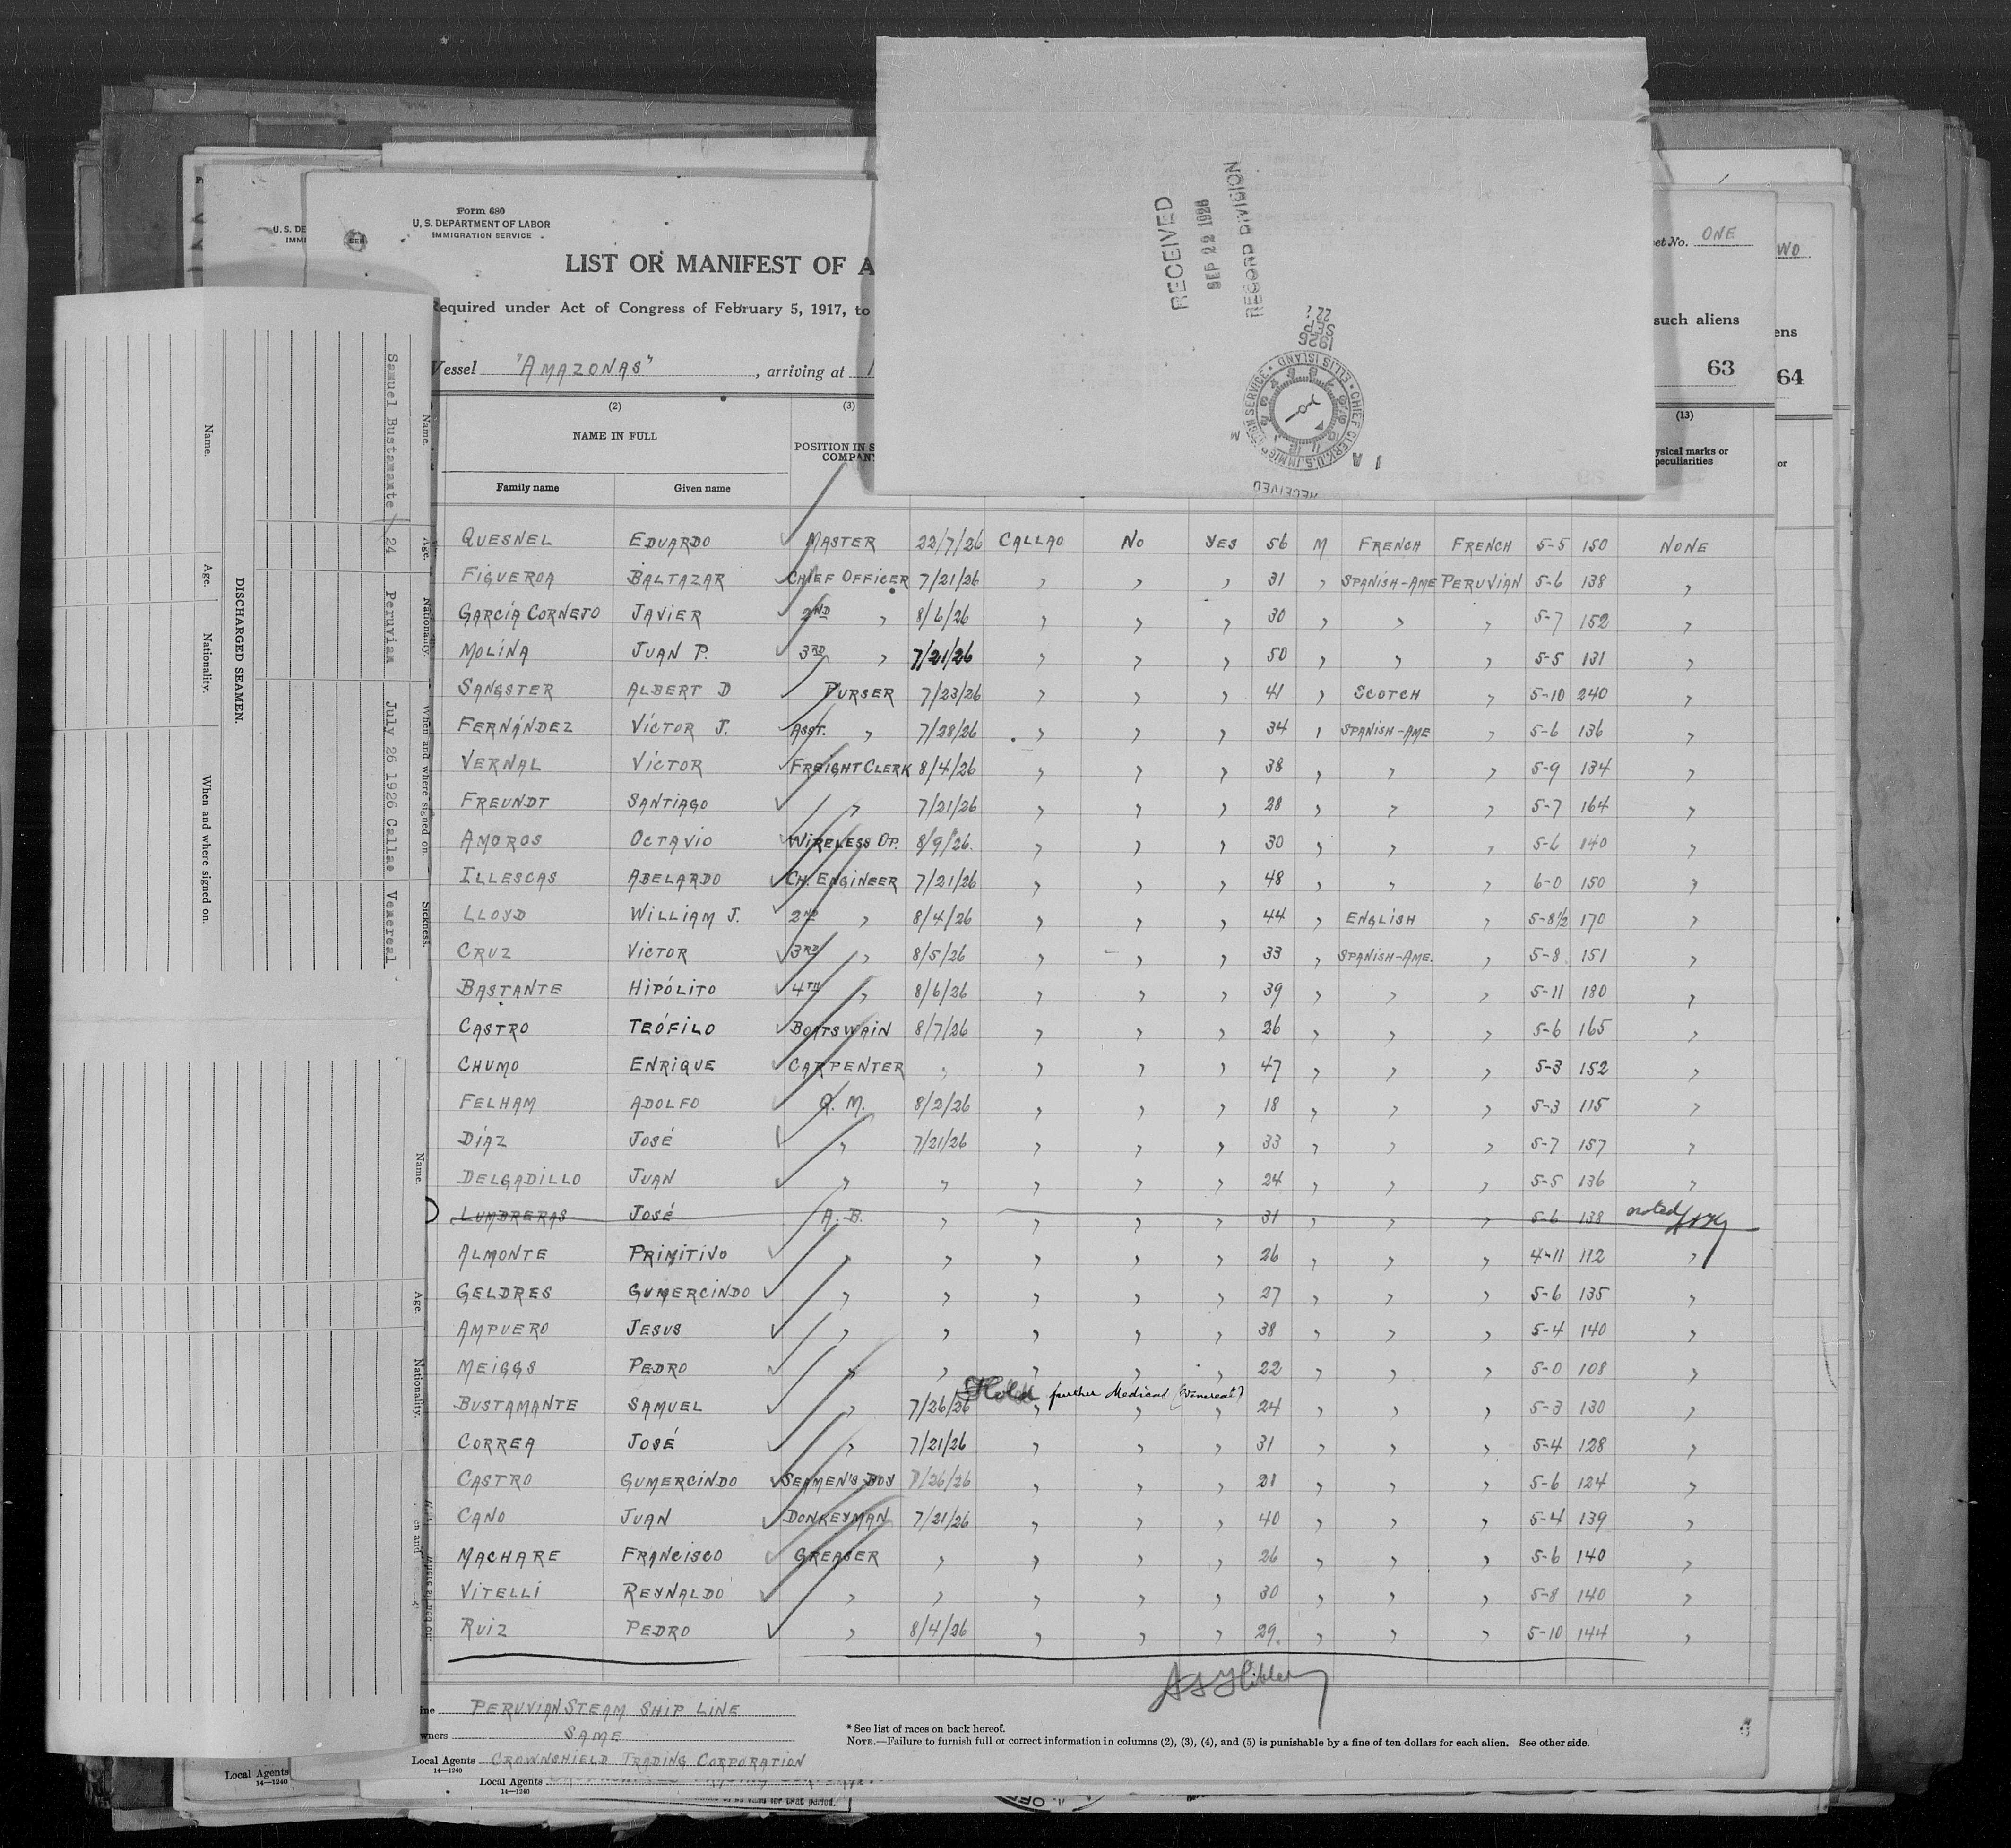 Form 680
U. S. DEPARTMENT OF LABOR
IMMIGRATION SERVICE
LIST OR MANIFEST OF A
Required under Act of Congress of February 5, 1917, to
such aliens
Vessel "AMAZONAS" , arriving at
et No. ONE
WO
ens
63
64
(2) (3) (13)
NAME IN FULL
POSITION IN S
COMPAN
ysical marks or
peculiarities
or
Family name Given name
RECEIVED
SEP 22 1926
RECORD DIVISION
QUESNEL EDUARDO MASTER 22/7/26 CALLAO NO YES 56 M FRENCH FRENCH 5-5 150 NONE
FIGUEROA BALTAZAR CHIEF OFFICER 7/21/26 " " " 31 " SPANISH-AME PERUVIAN 5-6 138 "
GARCÍA CORNEJO JAVIER 2ND " 8/6/26 " " " 30 " " " 5-7 152 "
MOLINA JUAN P. 3RD " 7/21/26 " " " 50 " " " 5-5 131 "
SANGSTER ALBERT D PURSER 7/23/26 " " " 41 " SCOTCH " 5-10 240 "
FERNÁNDEZ VÍCTOR J. ASST. " 7/28/26 " " " 34 " SPANISH-AME " 5-6 136 "
VERNAL VÍCTOR FREIGHT CLERK 8/4/26 " " " 38 " " " 5-9 134 "
FREUNDT SANTIAGO " " 7/21/26 " " " 28 " " " 5-7 164 "
AMOROS OCTAVIO WIRELESS OP. 8/9/26. " " " 30 " " " 5-6 140 "
ILLESCAS ABELARDO CH. ENGINEER 7/21/26 " " " 48 " " " 6-0 150 "
LLOYD WILLIAM J. 2ND " 8/4/26 " " " 44 " ENGLISH " 5-8½ 170 "
CRUZ VICTOR 3RD " 8/5/26 " " " 33 " SPANISH-AME. " 5-8 151 "
BASTANTE HIPÓLITO 4TH " 8/6/26 " " " 39 " " " 5-11 180 "
CASTRO TEÓFILO BOATSWAIN 8/7/26 " " " 26 " " " 5-6 165 "
CHUMO ENRIQUE CARPENTER " " " " 47 " " " 5-3 152 "
FELHAM ADOLFO Q. M. 8/2/26 " " " 18 " " " 5-3 115 "
DÍAZ JOSÉ " 7/21/26 " " " 33 " " " 5-7 157 "
DELGADILLO JUAN " " " " " 24 " " " 5-5 136 "
LUMBRERAS JOSÉ A. B. " " " " 31 " " " 5-6 138
ALMONTE PRIMITIVO " " " " " 26 " " " 4-11 112 "
GELDRES GUMERCINDO " " " " " 27 " " " 5-6 135 "
AMPUERO JESUS " " " " " 38 " " " 5-4 140 "
MEIGGS PEDRO " " " " " 22 " " " 5-0 108 "
Hold further Medical (Venereal)
BUSTAMANTE SAMUEL " 7/26/26 " " " 24 " " " 5-3 130 "
CORREA JOSÉ " 7/21/26 " " " 31 " " " 5-4 128 "
CASTRO GUMERCINDO SEAMEN'S BOY 7/26/26 " " " 21 " " " 5-6 124 "
CANO JUAN DONKEYMAN 7/21/26 " " " 40 " " " 5-4 139 "
MACHARE FRANCISCO GREASER " " " " 26 " " " 5-6 140 "
VITELLI REYNALDO " " " " " 30 " " " 5-8 140 "
RUIZ PEDRO " 8/4/26 " " " 29. " " " 5-10 144 "
ine PERUVIAN STEAM SHIP LINE
wners SAME
Local Agents CROWNSHIELD TRADING CORPORATION
14—1240
* See list of races on back hereof.
NOTE.—Failure to furnish full or correct information in columns (2), (3), (4), and (5) is punishable by a fine of ten dollars for each alien. See other side.
Local Agents
14—1240
Local Agents
14—1240
DISCHARGED SEAMEN.
Name. Age. Nationality. When and where signed on.
Name. Age. Nationality. When and where signed on. Sickness.
Samuel Bustamante / 24 Peruvian July 26 1926 Callao Venereal
Name. Age. Nationality.
U. S. DE
IMMI